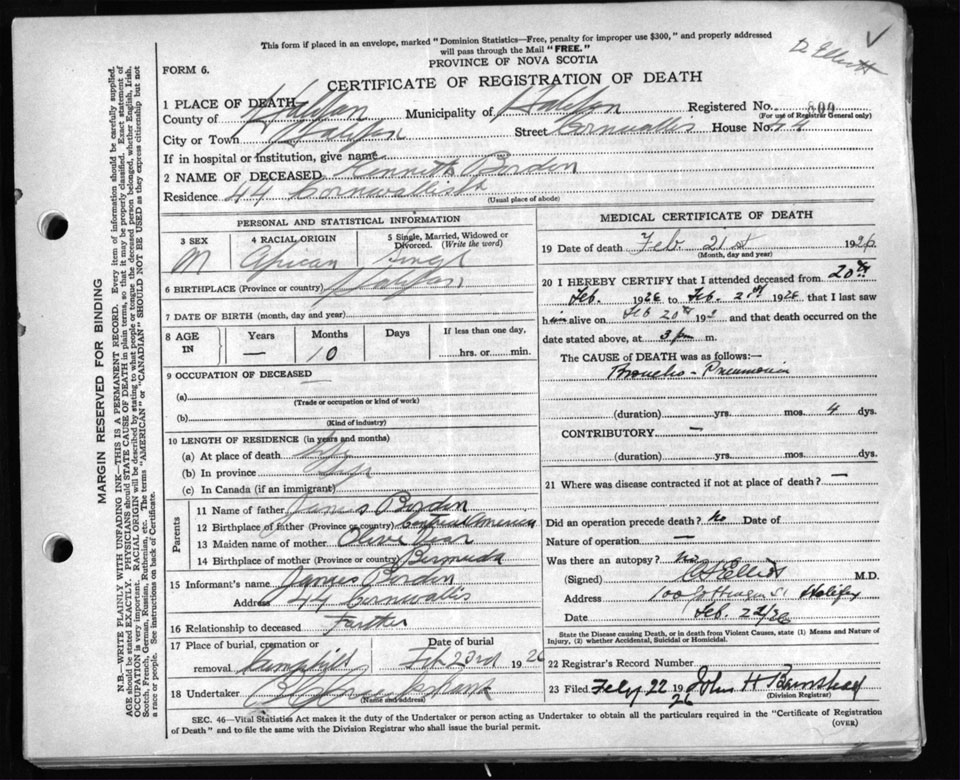 This form if placed in an envelope, marked "Dominion Statistics—Free, penalty for improper use $300," and properly addressed
will pass through the Mail "FREE."
D. Elliott
FORM 6.
PROVINCE OF NOVA SCOTIA
CERTIFICATE OF REGISTRATION OF DEATH
1 PLACE OF DEATH
County of Halifax Municipality of Halifax Registered No. 800
(For use of Registrar General only)
City or Town Halifax Street Cornwallis House No. 44
If in hospital or institution, give name
2 NAME OF DECEASED Kenneth Borden
Residence 44 Cornwallis St
(Usual place of abode)
PERSONAL AND STATISTICAL INFORMATION
3 SEX M
4 RACIAL ORIGIN African
5 Single, Married, Widowed or Divorced. (Write the word) Single
6 BIRTHPLACE (Province or country) Halifax
7 DATE OF BIRTH (month, day and year)
8 AGE IN Years — Months 10 Days If less than one day, ....hrs. or ....min.
9 OCCUPATION OF DECEASED —
(a)
(Trade or occupation or kind of work)
(b)
(Kind of industry)
10 LENGTH OF RESIDENCE (in years and months)
(a) At place of death life
(b) In province life
(c) In Canada (if an immigrant)
Parents
11 Name of father James Borden
12 Birthplace of father (Province or country) Central America
13 Maiden name of mother Olive
14 Birthplace of mother (Province or country) Bermuda
15 Informant's name James Borden
Address 44 Cornwallis
16 Relationship to deceased Farther
17 Place of burial, cremation or removal Date of burial Feb 23rd 1926
18 Undertaker
(Name and address)
MEDICAL CERTIFICATE OF DEATH
19 Date of death Feb. 21st 1926
(Month, day and year)
20 I HEREBY CERTIFY that I attended deceased from 20th
Feb. 1926 to Feb. 21st 1926 that I last saw
him alive on Feb 20th 192 and that death occurred on the
date stated above, at 3 pm m.
The CAUSE of DEATH was as follows:—
Broncho-Pneumonia
(duration) yrs. mos. 4 dys.
CONTRIBUTORY —
(duration) yrs. mos. dys.
21 Where was disease contracted if not at place of death? —
Did an operation precede death? No Date of
Nature of operation —
Was there an autopsy? No
(Signed) Elliott M.D.
Address 100 Gottingen St Halifax
Date Feb. 22/26
State the Disease causing Death, or in death from Violent Causes, state (1) Means and Nature of
Injury, (2) whether Accidental, Suicidal or Homicidal.
22 Registrar's Record Number
23 Filed Feby 22 1926 John H Barnstead
(Division Registrar)
SEC. 46—Vital Statistics Act makes it the duty of the Undertaker or person acting as Undertaker to obtain all the particulars required in the "Certificate of Registration
of Death" and to file the same with the Division Registrar who shall issue the burial permit.
(OVER)
MARGIN RESERVED FOR BINDING
N.B.—WRITE PLAINLY WITH UNFADING INK—THIS IS A PERMANENT RECORD. Every item of information should be carefully supplied.
AGE should be stated EXACTLY. PHYSICIANS should STATE CAUSE OF DEATH in plain terms, so that it may be properly classified. Exact statement of
OCCUPATION is very important. RACIAL ORIGIN will be described by stating to what people or tongue the deceased person belonged, whether English, Irish,
Scotch, French, German, Russian, Ruthenian, etc. The terms "AMERICAN" or "CANADIAN" SHOULD NOT BE USED as they express citizenship but not
a race or people. See instructions on back of Certificate.